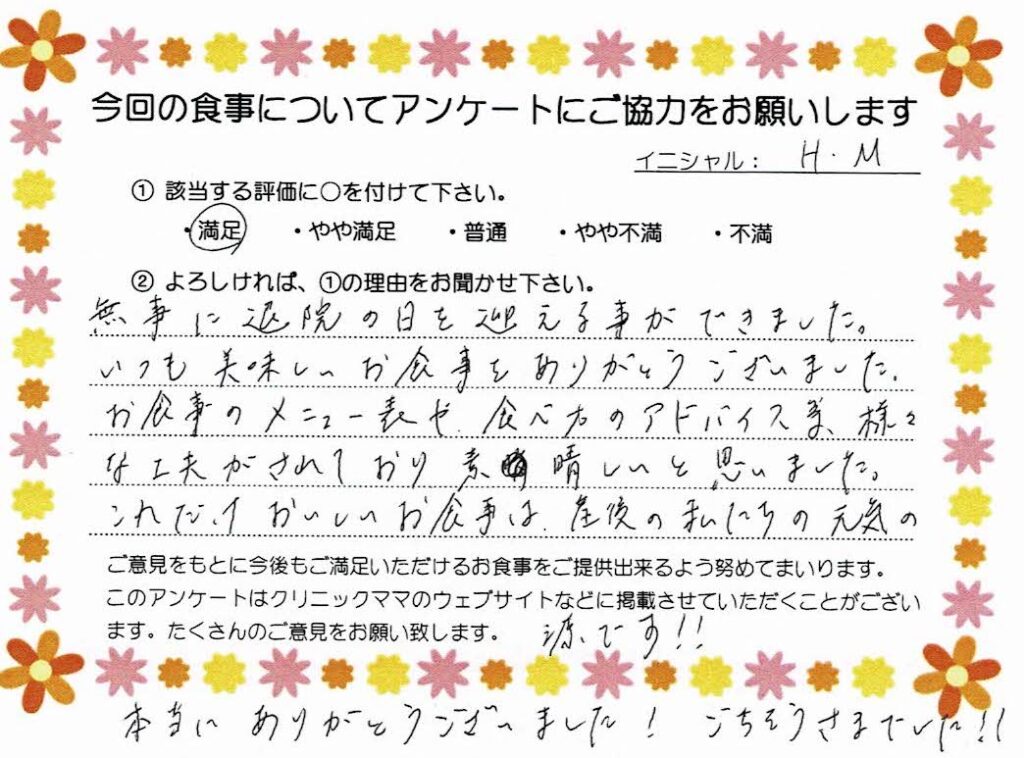 今回の食事についてアンケートにご協力をお願いします
イニシャル： H.M
① 該当する評価に○を付けて下さい。
・満足 ・やや満足 ・普通 ・やや不満 ・不満
② よろしければ、①の理由をお聞かせ下さい。
無事に退院の日を迎える事ができました。
いつも美味しいお食事をありがとうございました。
お食事のメニュー表や、食べ方のアドバイス等、様々
な工夫がされており素晴しいと思いました。
これだけおいしいお食事は、産後の私たちの元気の
ご意見をもとに今後もご満足いただけるお食事をご提供出来るよう努めてまいります。
このアンケートはクリニックママのウェブサイトなどに掲載させていただくことがござい
ます。たくさんのご意見をお願い致します。
源です!!
本当にありがとうございました! ごちそうさまでした!!